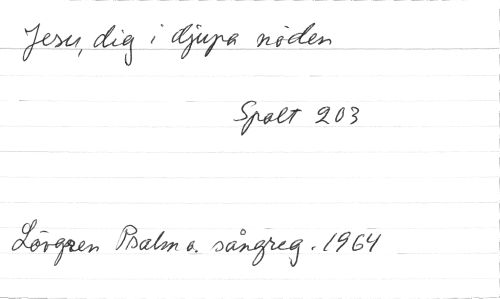 Jesu, dig i djupa nöden
Spalt 203
Lövgren Psalm o. sångreg. 1964